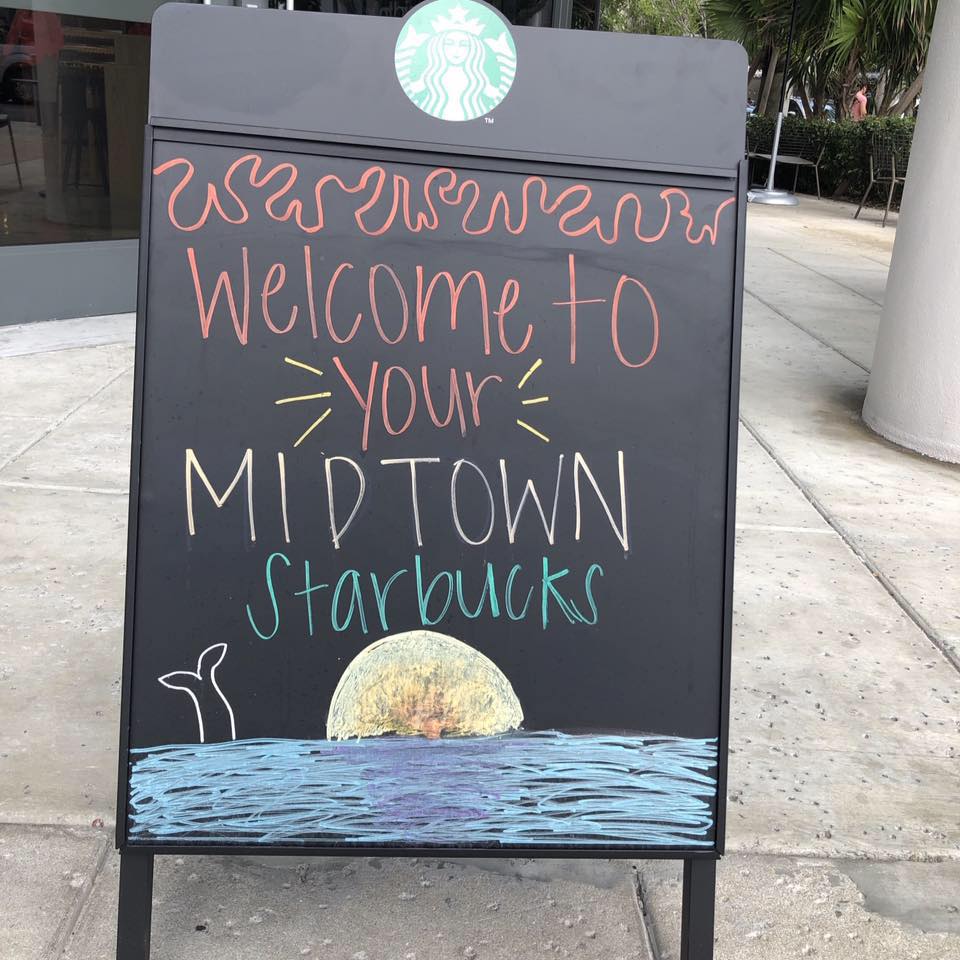 TM
Welcome to
your
MIDTOWN
Starbucks